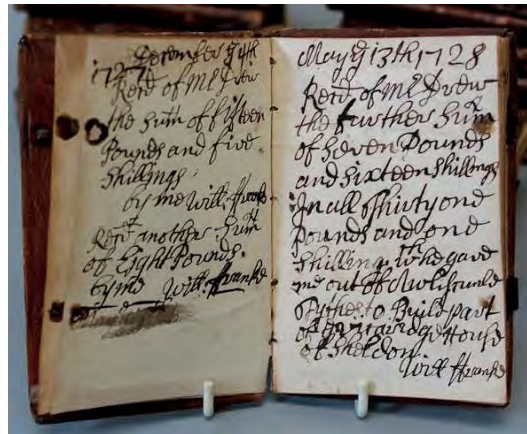 December ye 4th
1727
Recd of Mr Drew
the Sum of fifteen
Pounds and five
Shillings
by me Will: Franke
Recd another Sum
of Eight Pounds.
by me Will: Franke
May ye 13th 1728
Recd of Mr Drew
the further Sum
of Seven Pounds
and Sixteen Shillings
In all Thirty one
Pounds and one
Shilling. Who gave
me out of
Tythes to Build part
of House
of Sheldon.
Will Franke